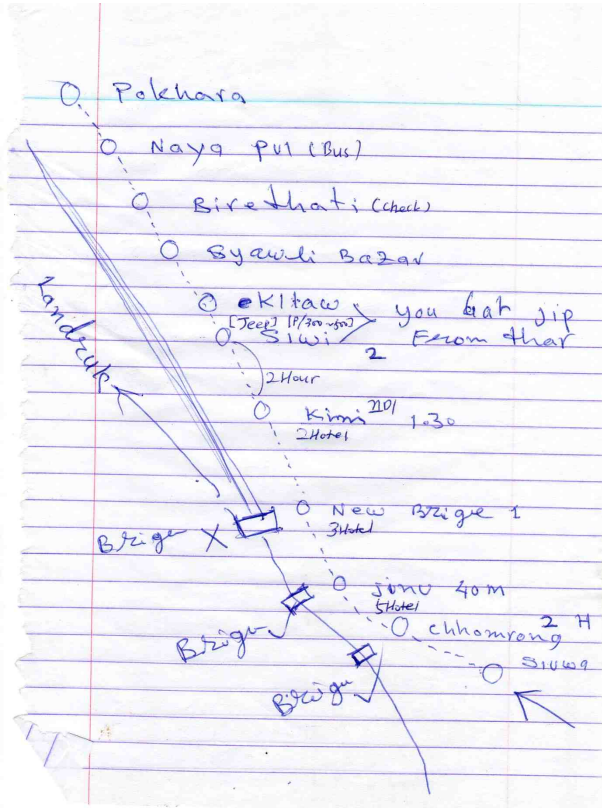 Pokhara
Naya Pul (Bus)
Birethati (Check)
Syawli Bazar
eKltaw
[Jeep]
Siwi
you Gat jip
From thar
2
Landruk
2 Hour
Kimi 1.30
2 Hotel
New Brige 1
3 Hotel
Brige X
Jinu 40m
5 Hotel
Chhomrong 2 H
Siuwa
Brige
Brige